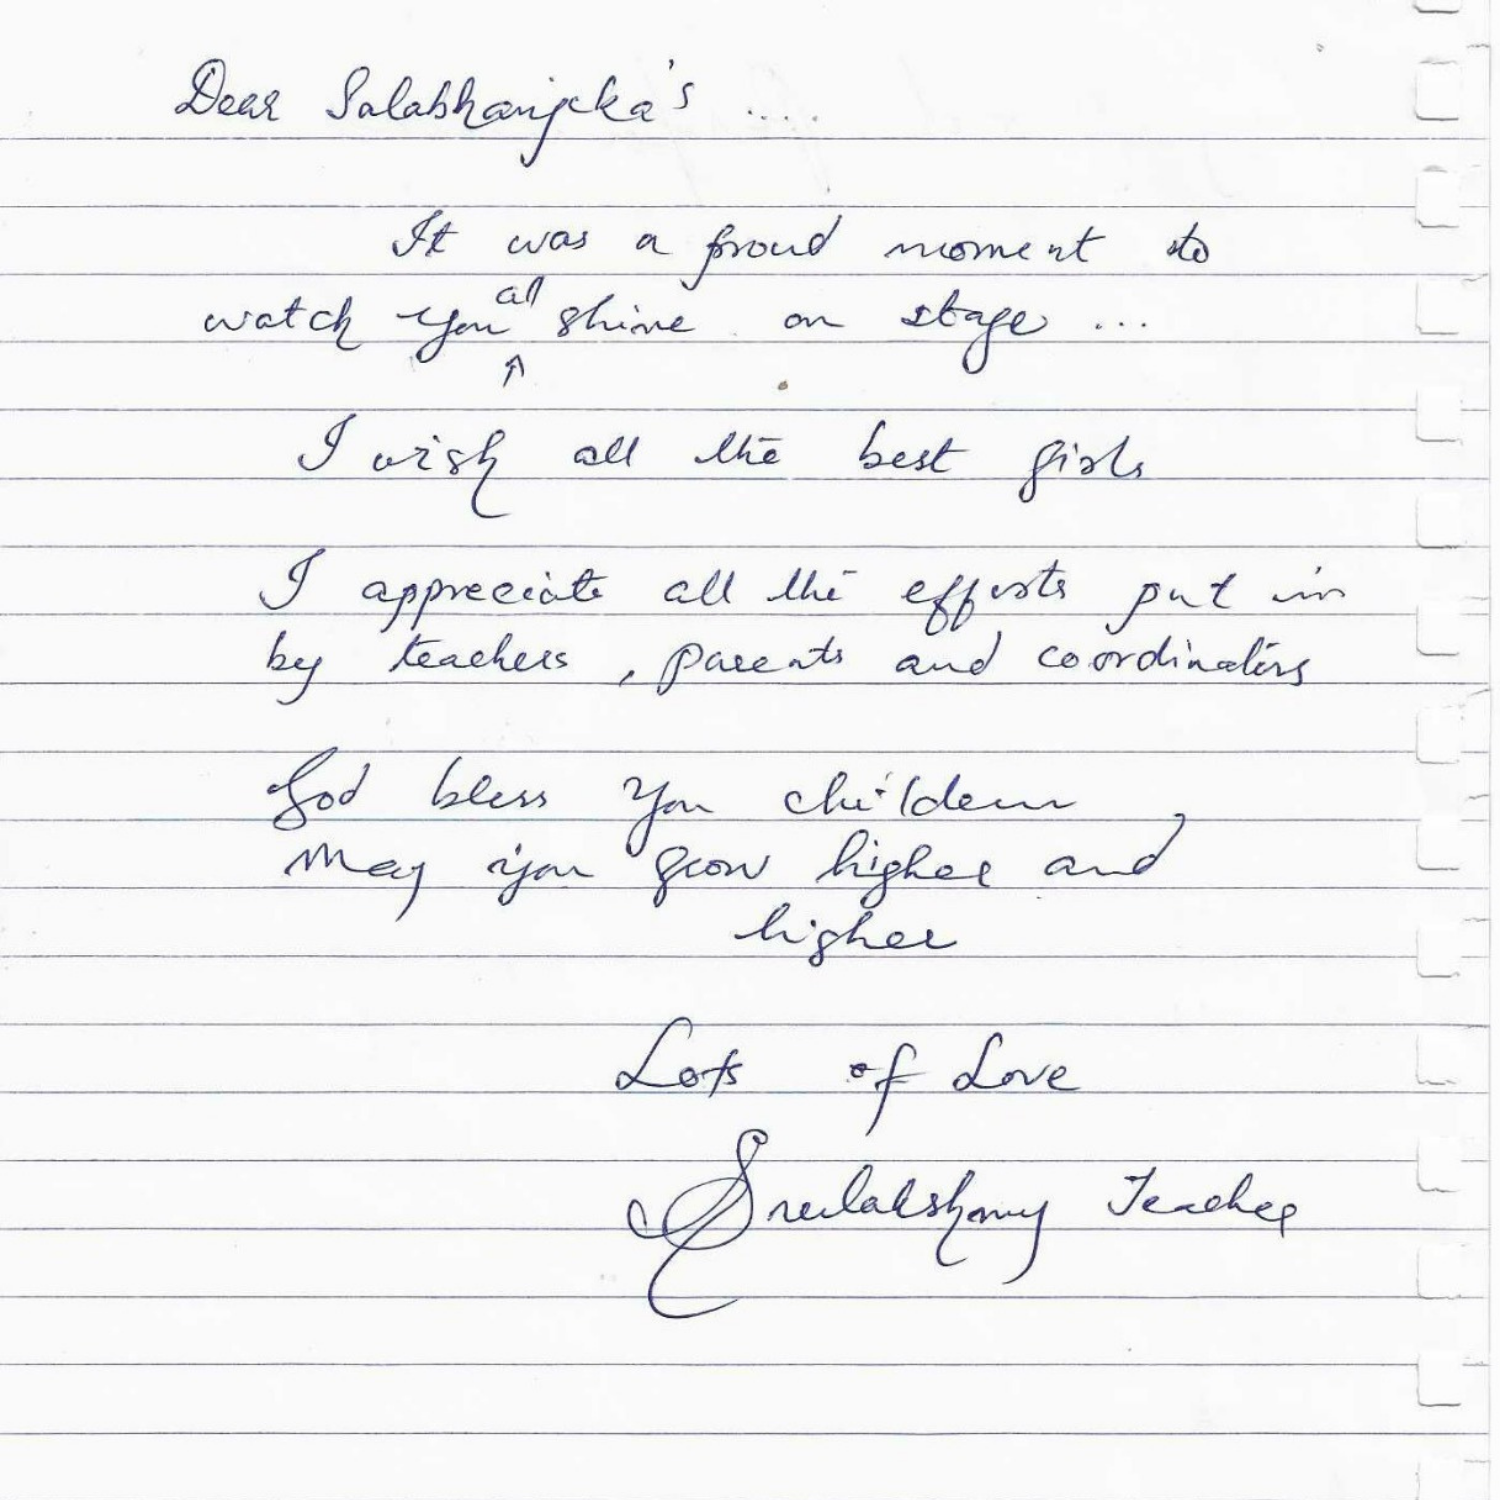 Dear Salabhanjika's ....
It was a proud moment to
watch you all shine on stage ...
I wish all the best girls
I appreciate all the efforts put in
by teachers, parents and coordinators
God bless you children,
May you grow higher and
higher
Lots of Love
Sreelakshmy Teacher